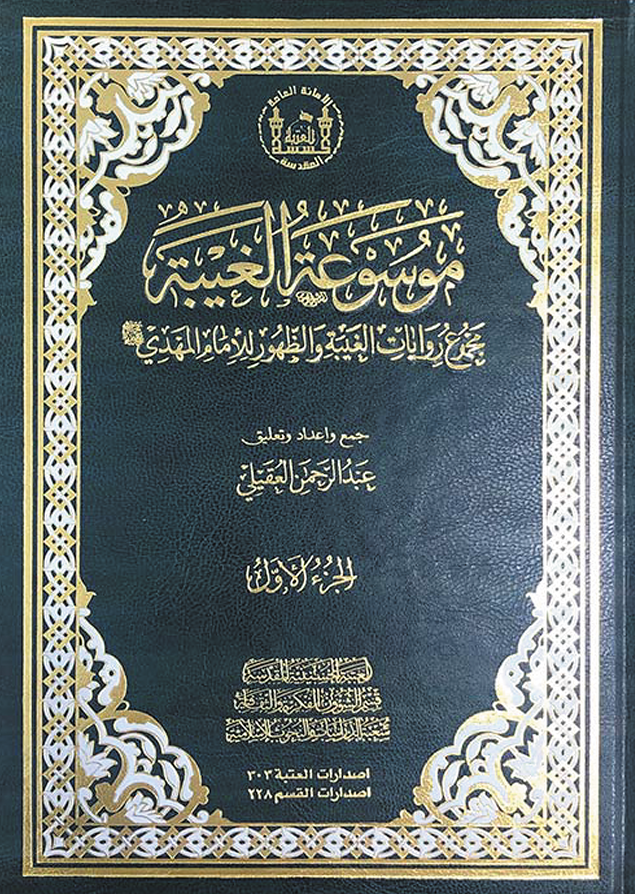 الأمانة العامة
للعتبة
المقدسة
موسوعة الغيبة
مجموع روايات الغيبة والظهور للإمام المهدي
جمع وإعداد وتعليق
عبد الرحمن العقيلي
الجزء الأول
العتبة الحسينية المقدسة
قسم الشؤون الفكرية والثقافية
شعبة الدراسات والبحوث الإسلامية
اصدارات العتبة ٣٠٣
اصدارات القسم ٢٢٨